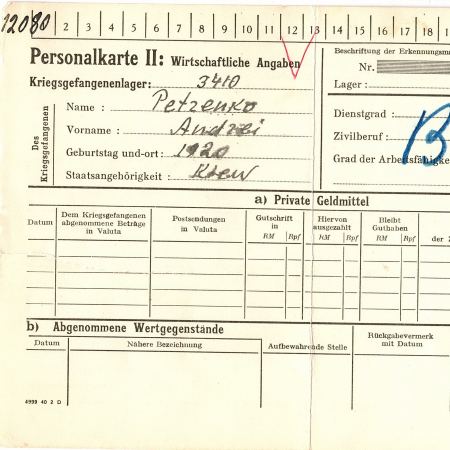 12080
2 3 4 5 6 7 8 9 10 11 12 13 14 15 16 17 18
Personalkarte II: Wirtschaftliche Angaben
Beschriftung der Erkennungsm
Nr.
Kriegsgefangenenlager: 3410
Lager:
Des Kriegsgefangenen
Name: Petzenko
Vorname: Andrei
Geburtstag und-ort: 1920
Staatsangehörigkeit: Kiew
Dienstgrad:
Zivilberuf:
Grad der Arbeitsfähigke
B
a) Private Geldmittel
Datum
Dem Kriegsgefangenen
abgenommene Beträge
in Valuta
Postsendungen
in Valuta
Gutschrift
in
RM Rpf
Hiervon
ausgezahlt
RM Rpf
Bleibt
Guthaben
RM Rpf
der
b) Abgenommene Wertgegenstände
Datum
Nähere Bezeichnung
Aufbewahrende Stelle
Rückgabevermerk
mit Datum
4999 40 2 D